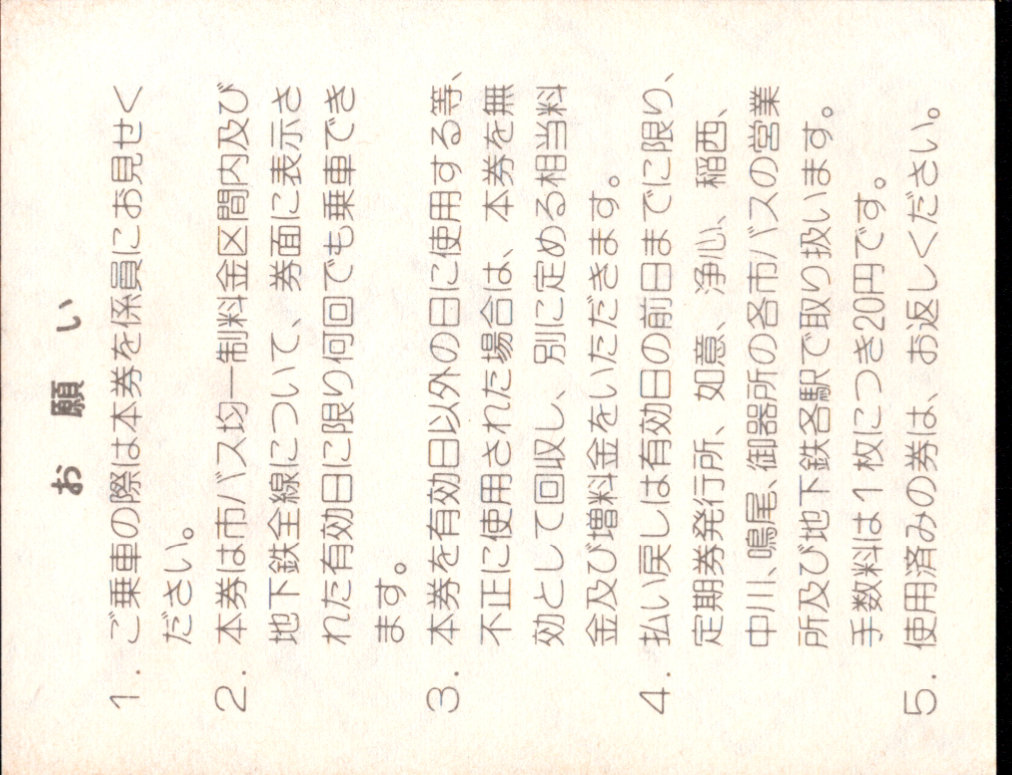 お　願　い
1. ご乗車の際は本券を係員にお見せく
ださい。
2. 本券は市バス均一制料金区間内及び
地下鉄全線について、券面に表示さ
れた有効日に限り何回でも乗車でき
ます。
3. 本券を有効日以外の日に使用する等、
不正に使用された場合は、本券を無
効として回収し、別に定める相当料
金及び増料金をいただきます。
4. 払い戻しは有効日の前日までに限り、
定期券発行所、如意、浄心、稲西、
中川、鳴尾、御器所の各市バスの営業
所及び地下鉄各駅で取り扱います。
手数料は1枚につき20円です。
5. 使用済みの券は、お返しください。